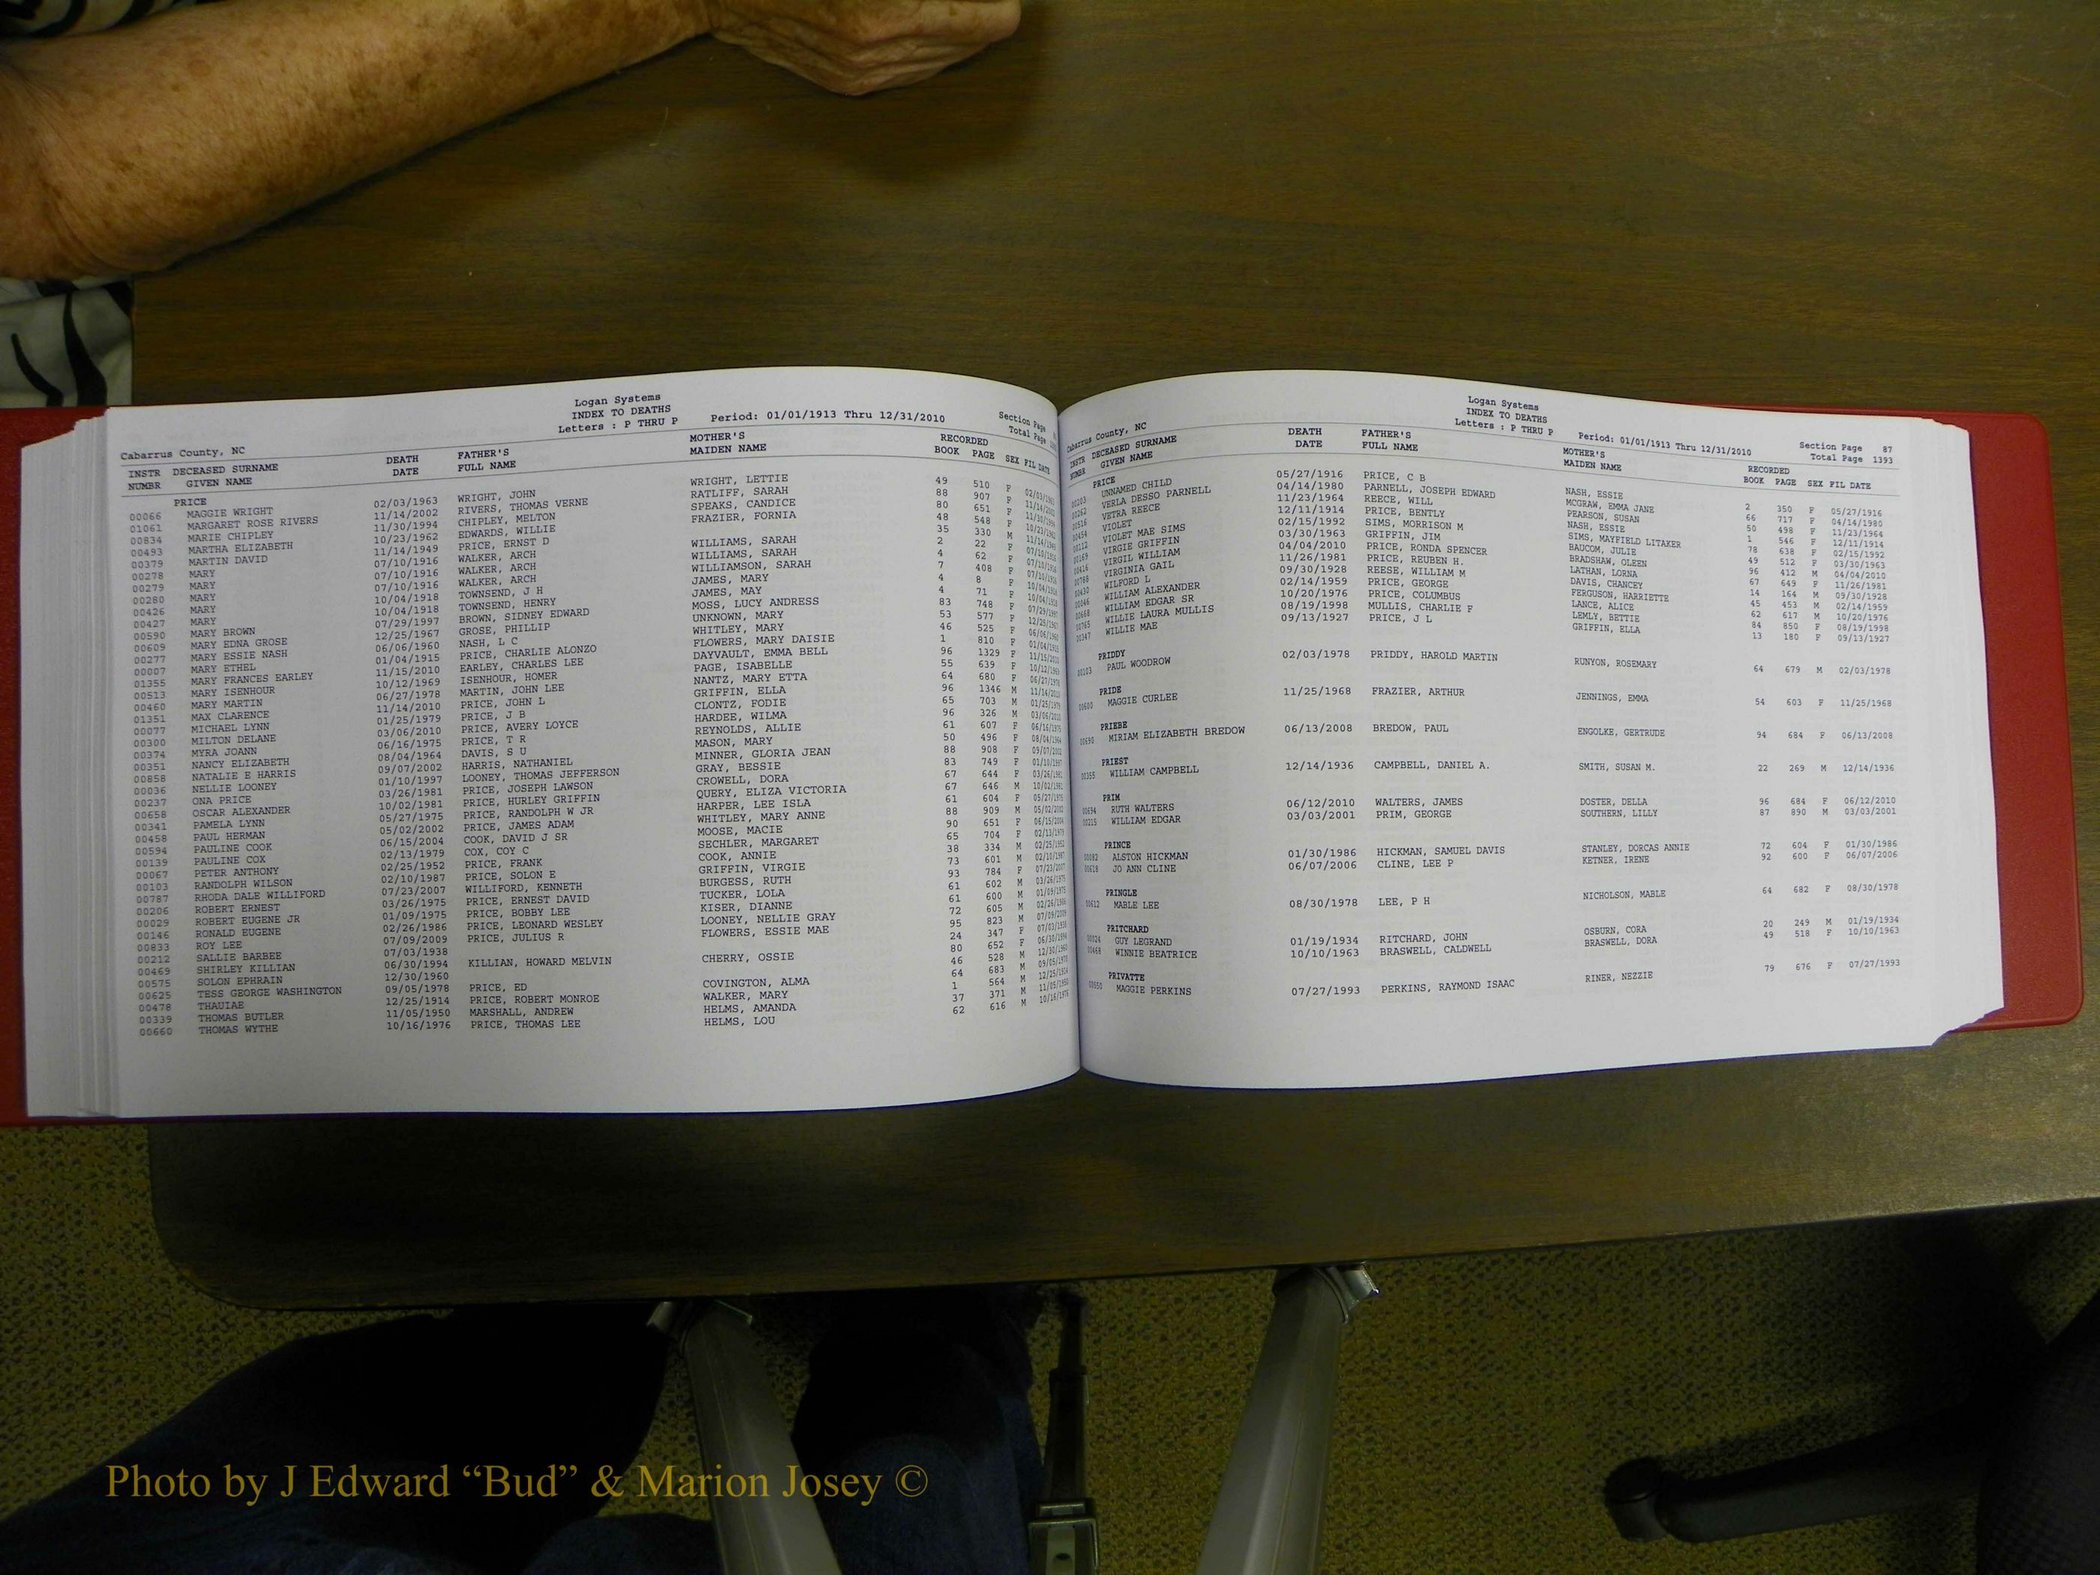 Logan Systems
INDEX TO DEATHS
Letters : P THRU P Period: 01/01/1913 Thru 12/31/2010
Section Page
Total Page
Cabarrus County, NC
INSTR DECEASED SURNAME DEATH FATHER'S MOTHER'S RECORDED
NUMBR GIVEN NAME DATE FULL NAME MAIDEN NAME BOOK PAGE SEX FIL DATE
PRICE
00066 MAGGIE WRIGHT 02/03/1963 WRIGHT, JOHN WRIGHT, LETTIE 49 510 F 02/03/1963
01061 MARGARET ROSE RIVERS 11/14/2002 RIVERS, THOMAS VERNE RATLIFF, SARAH 88 907 F 11/14/2002
00834 MARIE CHIPLEY 11/30/1994 CHIPLEY, MELTON SPEAKS, CANDICE 80 651 F 11/30/1994
00493 MARTHA ELIZABETH 10/23/1962 EDWARDS, WILLIE FRAZIER, FORNIA 48 548 F 10/23/1962
00379 MARTIN DAVID 11/14/1949 PRICE, ERNST D 35 330 M 11/14/1949
00278 MARY 07/10/1916 WALKER, ARCH WILLIAMS, SARAH 2 22 F 07/10/1916
00279 MARY 07/10/1916 WALKER, ARCH WILLIAMS, SARAH 4 62 F 07/10/1916
00280 MARY 07/10/1916 WALKER, ARCH WILLIAMSON, SARAH 7 408 F 07/10/1916
00426 MARY 10/04/1918 TOWNSEND, J H JAMES, MARY 4 8 F 10/04/1918
00427 MARY 10/04/1918 TOWNSEND, HENRY JAMES, MAY 4 71 F 10/04/1918
00590 MARY BROWN 07/29/1997 BROWN, SIDNEY EDWARD MOSS, LUCY ANDRESS 83 748 F 07/29/1997
00609 MARY EDNA GROSE 12/25/1967 GROSE, PHILLIP UNKNOWN, MARY 53 577 F 12/25/1967
00277 MARY ESSIE NASH 06/06/1960 NASH, L C WHITLEY, MARY 46 525 F 06/06/1960
00007 MARY ETHEL 01/04/1915 PRICE, CHARLIE ALONZO FLOWERS, MARY DAISIE 1 810 F 01/04/1915
01355 MARY FRANCES EARLEY 11/15/2010 EARLEY, CHARLES LEE DAYVAULT, EMMA BELL 96 1329 F 11/15/2010
00513 MARY ISENHOUR 10/12/1969 ISENHOUR, HOMER PAGE, ISABELLE 55 639 F 10/12/1969
00460 MARY MARTIN 06/27/1978 MARTIN, JOHN LEE NANTZ, MARY ETTA 64 680 F 06/27/1978
01351 MAX CLARENCE 11/14/2010 PRICE, JOHN L GRIFFIN, ELLA 96 1346 M 11/14/2010
00077 MICHAEL LYNN 01/25/1979 PRICE, J B CLONTZ, FODIE 65 703 M 01/25/1979
00300 MILTON DELANE 03/06/2010 PRICE, AVERY LOYCE HARDEE, WILMA 96 326 M 03/06/2010
00374 MYRA JOANN 06/16/1975 PRICE, T R REYNOLDS, ALLIE 61 607 F 06/16/1975
00351 NANCY ELIZABETH 08/04/1964 DAVIS, S U MASON, MARY 50 496 F 08/04/1964
00858 NATALIE E HARRIS 09/07/2002 HARRIS, NATHANIEL MINNER, GLORIA JEAN 88 908 F 09/07/2002
00036 NELLIE LOONEY 01/10/1997 LOONEY, THOMAS JEFFERSON GRAY, BESSIE 83 749 F 01/10/1997
00237 ONA PRICE 03/26/1981 PRICE, JOSEPH LAWSON CROWELL, DORA 67 644 F 03/26/1981
00658 OSCAR ALEXANDER 10/02/1981 PRICE, HURLEY GRIFFIN QUERY, ELIZA VICTORIA 67 646 M 10/02/1981
00341 PAMELA LYNN 05/27/1975 PRICE, RANDOLPH W JR HARPER, LEE ISLA 61 604 F 05/27/1975
00458 PAUL HERMAN 05/02/2002 PRICE, JAMES ADAM WHITLEY, MARY ANNE 88 909 M 05/02/2002
00594 PAULINE COOK 06/15/2004 COOK, DAVID J SR MOOSE, MACIE 90 651 F 06/15/2004
00139 PAULINE COX 02/13/1979 COX, COY C SECHLER, MARGARET 65 704 F 02/13/1979
00067 PETER ANTHONY 02/25/1952 PRICE, FRANK COOK, ANNIE 38 334 M 02/25/1952
00103 RANDOLPH WILSON 02/10/1987 PRICE, SOLON E GRIFFIN, VIRGIE 73 601 M 02/10/1987
00787 RHODA DALE WILLIFORD 07/23/2007 WILLIFORD, KENNETH BURGESS, RUTH 93 784 F 07/23/2007
00206 ROBERT ERNEST 03/26/1975 PRICE, ERNEST DAVID TUCKER, LOLA 61 602 M 03/26/1975
00029 ROBERT EUGENE JR 01/09/1975 PRICE, BOBBY LEE KISER, DIANNE 61 600 M 01/09/1975
00146 RONALD EUGENE 02/26/1986 PRICE, LEONARD WESLEY LOONEY, NELLIE GRAY 72 605 M 02/26/1986
00833 ROY LEE 07/09/2009 PRICE, JULIUS R FLOWERS, ESSIE MAE 95 823 M 07/09/2009
00212 SALLIE BARBEE 07/03/1938 24 347 F 07/03/1938
00469 SHIRLEY KILLIAN 06/30/1994 KILLIAN, HOWARD MELVIN CHERRY, OSSIE 80 652 F 06/30/1994
00575 SOLON EPHRAIN 12/30/1960 46 528 M 12/30/1960
00625 TESS GEORGE WASHINGTON 09/05/1978 PRICE, ED COVINGTON, ALMA 64 683 M 09/05/1978
00478 THAUIAE 12/25/1914 PRICE, ROBERT MONROE WALKER, MARY 1 564 M 12/25/1914
00339 THOMAS BUTLER 11/05/1950 MARSHALL, ANDREW HELMS, AMANDA 37 371 M 11/05/1950
00660 THOMAS WYTHE 10/16/1976 PRICE, THOMAS LEE HELMS, LOU 62 616 M 10/16/1976
Logan Systems
INDEX TO DEATHS
Letters : P THRU P Period: 01/01/1913 Thru 12/31/2010
Section Page 87
Total Page 1393
Cabarrus County, NC
INSTR DECEASED SURNAME DEATH FATHER'S MOTHER'S RECORDED
NUMBR GIVEN NAME DATE FULL NAME MAIDEN NAME BOOK PAGE SEX FIL DATE
PRICE
00203 UNNAMED CHILD 05/27/1916 PRICE, C B NASH, ESSIE 2 350 F 05/27/1916
00262 VERLA DESSO PARNELL 04/14/1980 PARNELL, JOSEPH EDWARD MCGRAW, EMMA JANE 66 717 F 04/14/1980
00516 VETRA REECE 11/23/1964 REECE, WILL PEARSON, SUSAN 50 498 F 11/23/1964
00454 VIOLET 12/11/1914 PRICE, BENTLY NASH, ESSIE 1 546 F 12/11/1914
00112 VIOLET MAE SIMS 02/15/1992 SIMS, MORRISON M SIMS, MAYFIELD LITAKER 78 638 F 02/15/1992
00169 VIRGIE GRIFFIN 03/30/1963 GRIFFIN, JIM BAUCOM, JULIE 49 512 F 03/30/1963
00416 VIRGIL WILLIAM 04/04/2010 PRICE, RONDA SPENCER BRADSHAW, OLEEN 96 412 M 04/04/2010
00788 VIRGINIA GAIL 11/26/1981 PRICE, REUBEN H. LATHAN, LORNA 67 649 F 11/26/1981
00430 WILFORD L 09/30/1928 REESE, WILLIAM M DAVIS, CHANCEY 14 164 M 09/30/1928
00046 WILLIAM ALEXANDER 02/14/1959 PRICE, GEORGE FERGUSON, HARRIETTE 45 453 M 02/14/1959
00668 WILLIAM EDGAR SR 10/20/1976 PRICE, COLUMBUS LANCE, ALICE 62 617 M 10/20/1976
00765 WILLIE LAURA MULLIS 08/19/1998 MULLIS, CHARLIE F LEMLY, BETTIE 84 850 F 08/19/1998
00347 WILLIE MAE 09/13/1927 PRICE, J L GRIFFIN, ELLA 13 180 F 09/13/1927
PRIDDY
00103 PAUL WOODROW 02/03/1978 PRIDDY, HAROLD MARTIN RUNYON, ROSEMARY 64 679 M 02/03/1978
PRIDE
00600 MAGGIE CURLEE 11/25/1968 FRAZIER, ARTHUR JENNINGS, EMMA 54 603 F 11/25/1968
PRIEBE
00690 MIRIAM ELIZABETH BREDOW 06/13/2008 BREDOW, PAUL ENGOLKE, GERTRUDE 94 684 F 06/13/2008
PRIEST
00355 WILLIAM CAMPBELL 12/14/1936 CAMPBELL, DANIEL A. SMITH, SUSAN M. 22 269 M 12/14/1936
PRIM
00694 RUTH WALTERS 06/12/2010 WALTERS, JAMES DOSTER, DELLA 96 684 F 06/12/2010
00215 WILLIAM EDGAR 03/03/2001 PRIM, GEORGE SOUTHERN, LILLY 87 890 M 03/03/2001
PRINCE
00082 ALSTON HICKMAN 01/30/1986 HICKMAN, SAMUEL DAVIS STANLEY, DORCAS ANNIE 72 604 F 01/30/1986
00618 JO ANN CLINE 06/07/2006 CLINE, LEE P KETNER, IRENE 92 600 F 06/07/2006
PRINGLE
00612 MABLE LEE 08/30/1978 LEE, P H NICHOLSON, MABLE 64 682 F 08/30/1978
PRITCHARD
00024 GUY LEGRAND 01/19/1934 RITCHARD, JOHN OSBURN, CORA 20 249 M 01/19/1934
00468 WINNIE BEATRICE 10/10/1963 BRASWELL, CALDWELL BRASWELL, DORA 49 518 F 10/10/1963
PRIVATTE
00550 MAGGIE PERKINS 07/27/1993 PERKINS, RAYMOND ISAAC RINER, NEZZIE 79 676 F 07/27/1993
Photo by J Edward “Bud” & Marion Josey ©